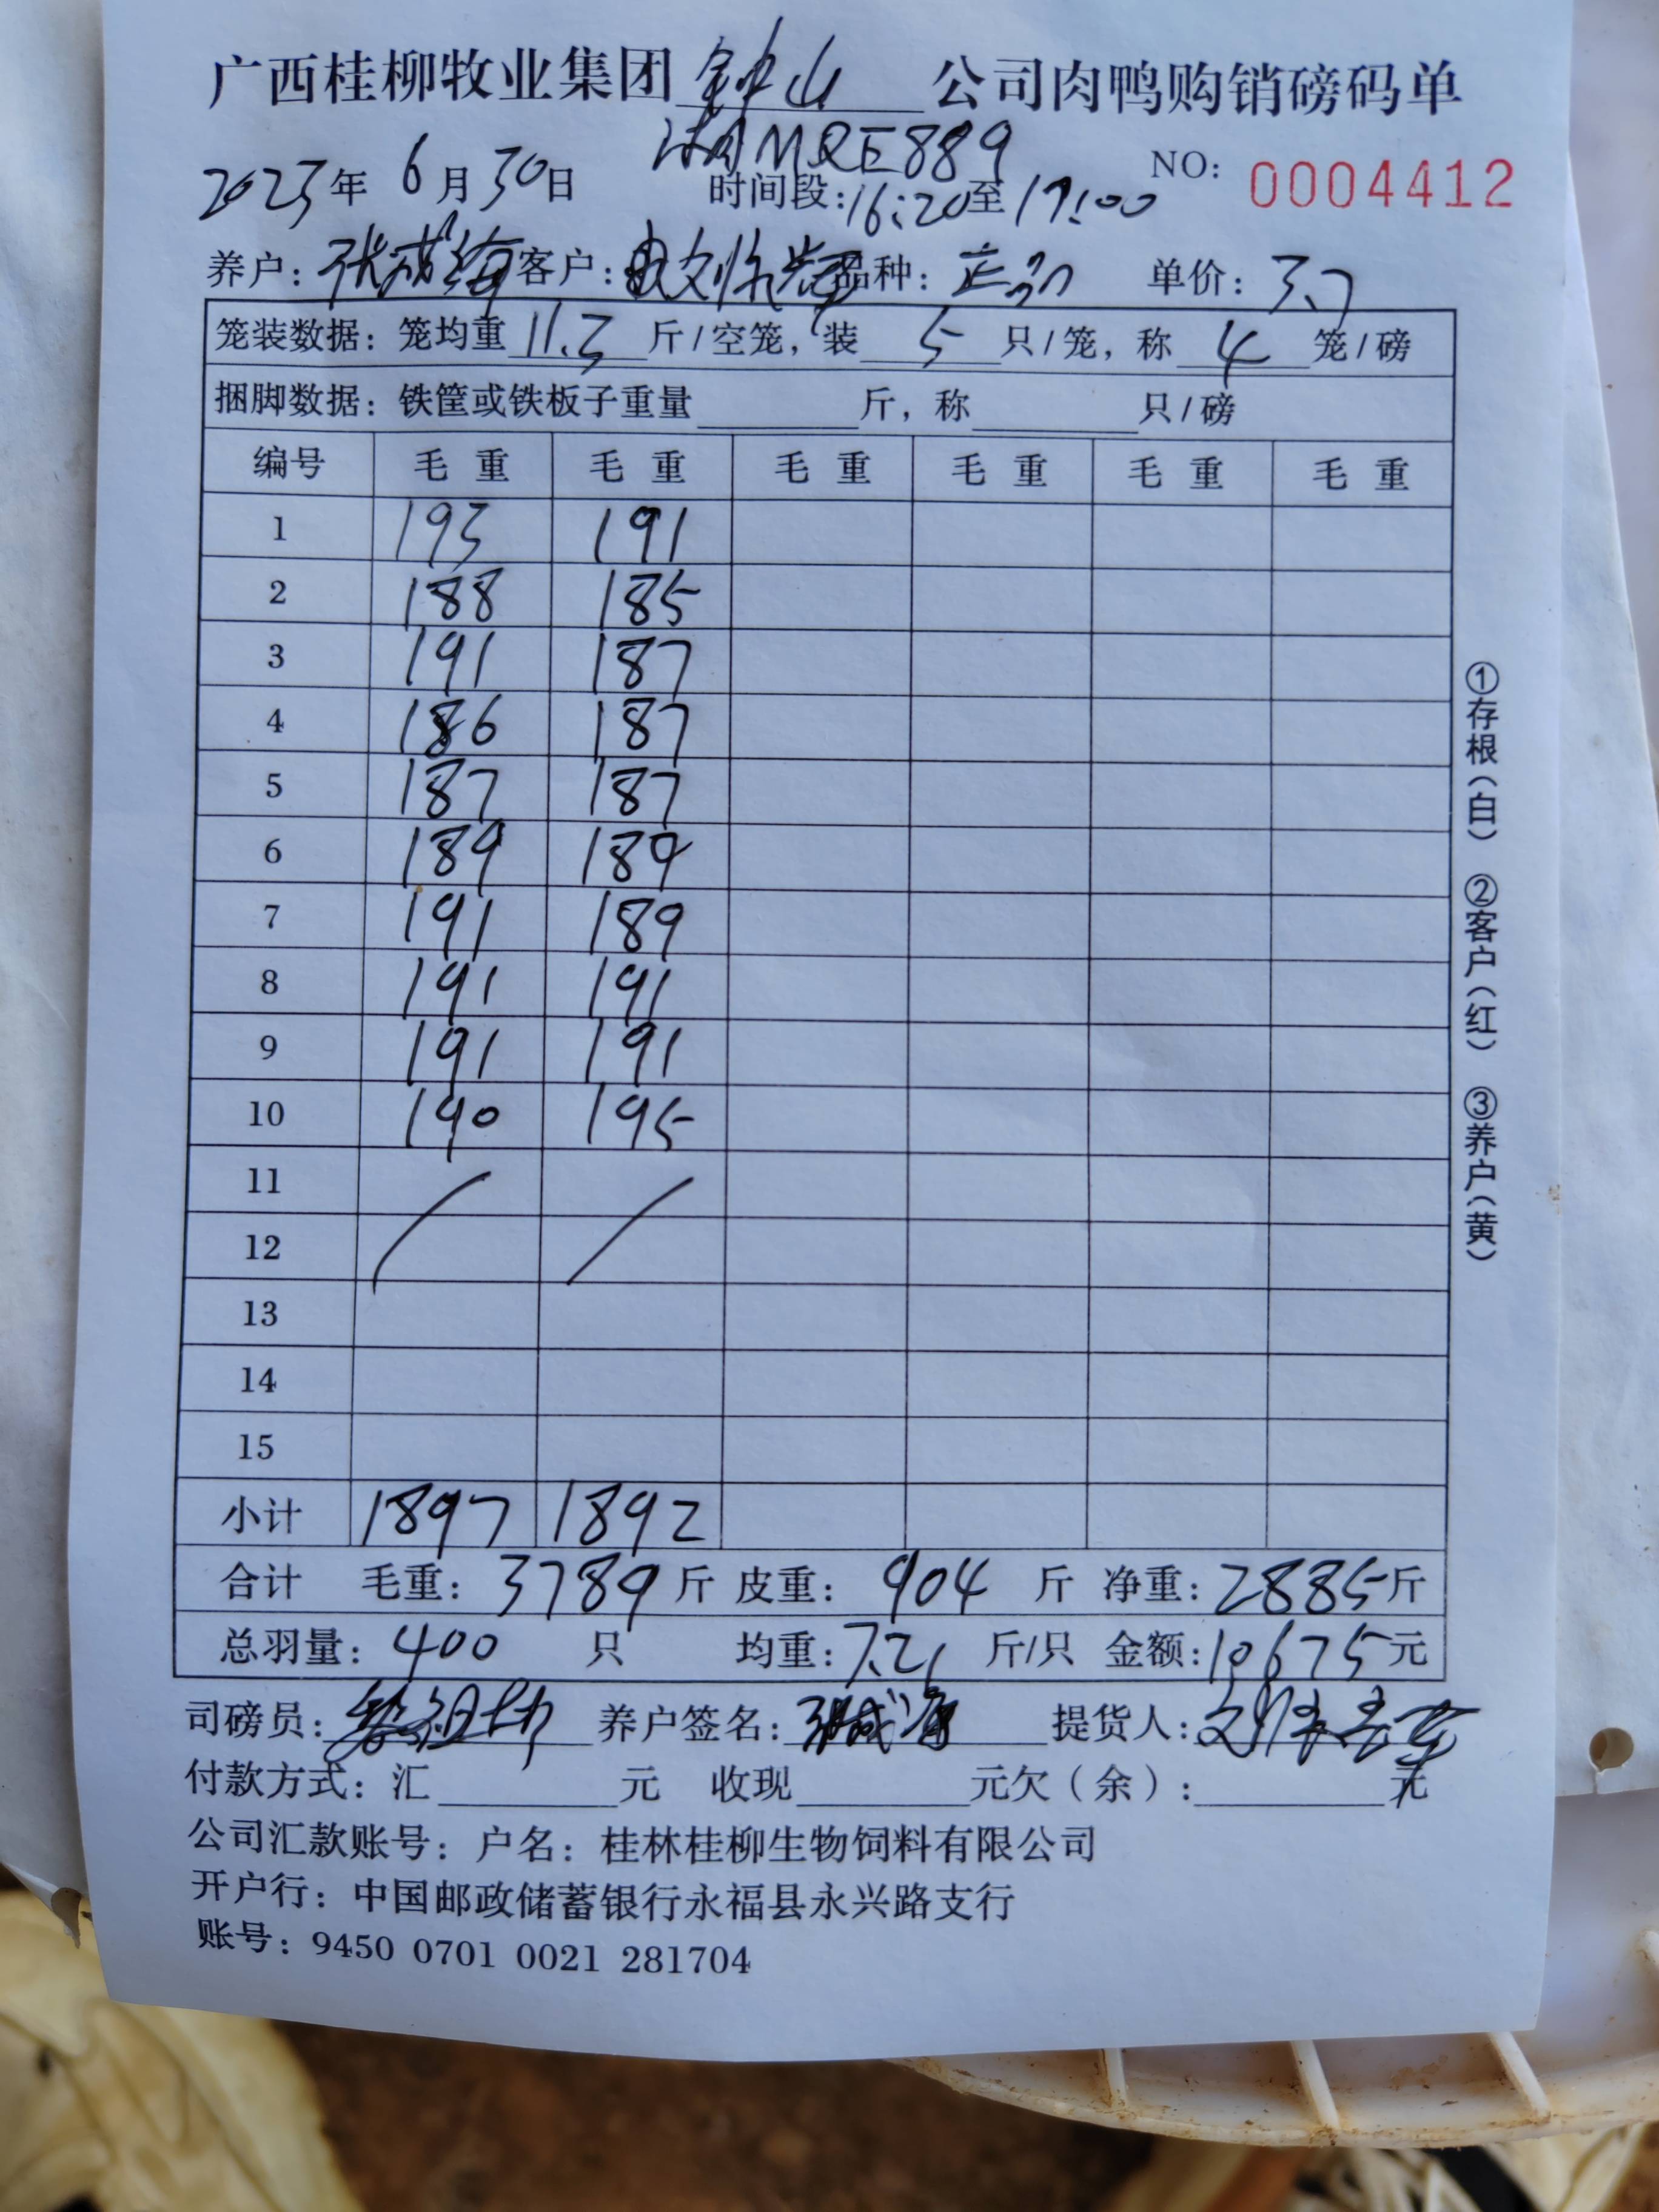 广西桂柳牧业集团 钟山 公司肉鸭购销磅码单
湘MQE889
2023年 6月30日 时间段:16:20至17:00 NO: 0004412
养户: 张成海 客户: 品种: 正品 单价: 3.7
笼装数据: 笼均重 11.3 斤/空笼, 装 5 只/笼, 称 4 笼/磅
捆脚数据: 铁筐或铁板子重量 斤, 称 只/磅
编号 毛重 毛重 毛重 毛重 毛重 毛重
1 193 191
2 188 185
3 191 187
4 186 187
5 187 187
6 189 189
7 191 189
8 191 191
9 191 191
10 190 195
11
12
13
14
15
小计 1897 1892
合计 毛重: 3789斤 皮重: 904 斤 净重: 2885斤
总羽量: 400 只 均重: 7.21 斤/只 金额: 10675元
司磅员: 养户签名: 张成海 提货人:
付款方式: 汇 元 收现 元欠(余): 元
公司汇款账号: 户名: 桂林桂柳生物饲料有限公司
开户行: 中国邮政储蓄银行永福县永兴路支行
账号: 9450 0701 0021 281704
①存根(白) ②客户(红) ③养户(黄)